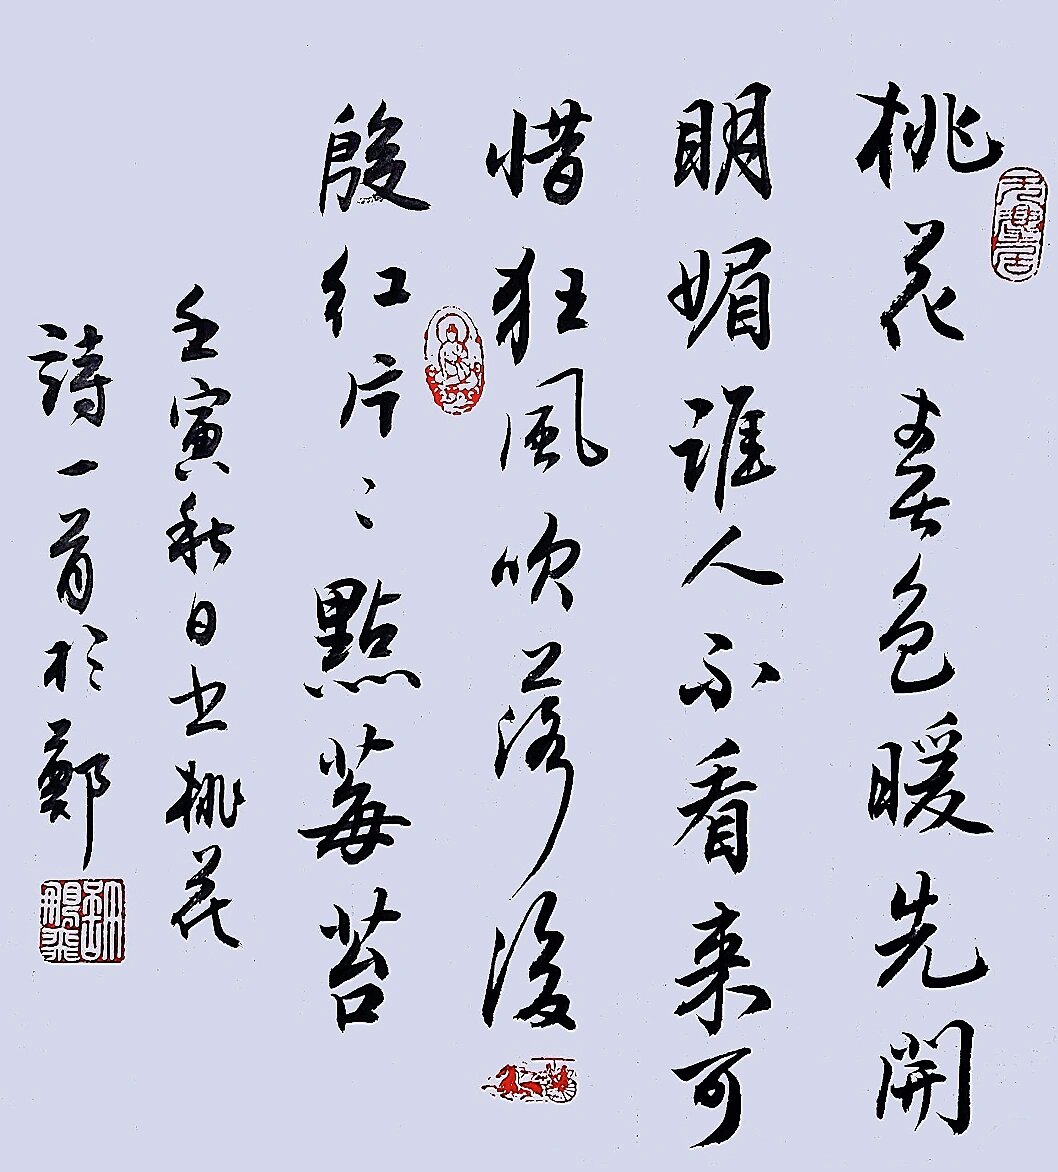 桃花春色暖先開
明媚誰人不看来可
惜狂風吹落後
殷红片〻點莓苔
壬寅秋日书桃花
詩一首於鄭